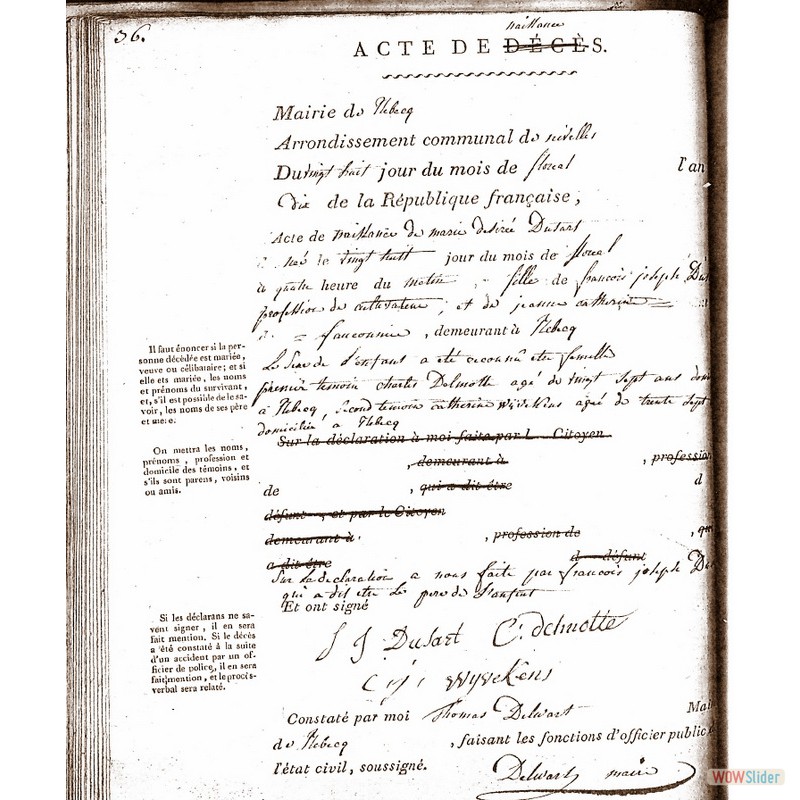 36.
naissance
ACTE DE DÉCÈS.
Mairie de Rebecq
Arrondissement communal de nivelles
Du vingt huit jour du mois de floreal l'an
dix de la République française,
Acte de naissance de marie desiré Dusart
née le vingt huit jour du mois de floreal
à quatre heure du matin, fille de francois joseph Dus
profession de cultivateur, et de jeanne catherine
fauconnier, demeurant à Rebecq
Le sexe de l'enfant a été reconnû etre femelle
premier temoin charles Delmotte agé de vingt sept ans domi
à Rebecq, second temoin catherine wyvekens agée de trente sept
domiciliée à Rebecq
Sur la déclaration à moi faite par l Citoyen
, demeurant à , profession
de , qui a dit être d
défunt , et par le Citoyen
demeurant à , profession de , qu
a dit être d défunt
Sur la declaration a nous faite par francois joseph Du
qui a dit etre le pere de l'enfant
Et ont signé
f J Dusart C. delmotte
wyvekens
Constaté par moi Thomas Delwart Mai
de Rebecq , faisant les fonctions d'officier public
l'état civil, soussigné.
Delwart maire
Il faut énoncer si la per-
sonne décédée est mariée,
veuve ou célibataire; et si
elle ets mariée, les noms
et prénoms du survivant,
et, s'il est possible de le sa-
voir, les noms de ses père
et mere.
On mettra les noms,
prénoms, profession et
domicile des témoins, et
s'ils sont parens, voisins
ou amis.
Si les déclarans ne sa-
vent signer, il en sera
fait mention. Si le décès
a été constaté à la suite
d'un accident par un of-
ficier de police, il en sera
fait mention, et le procès-
verbal sera relaté.
WOWSlider